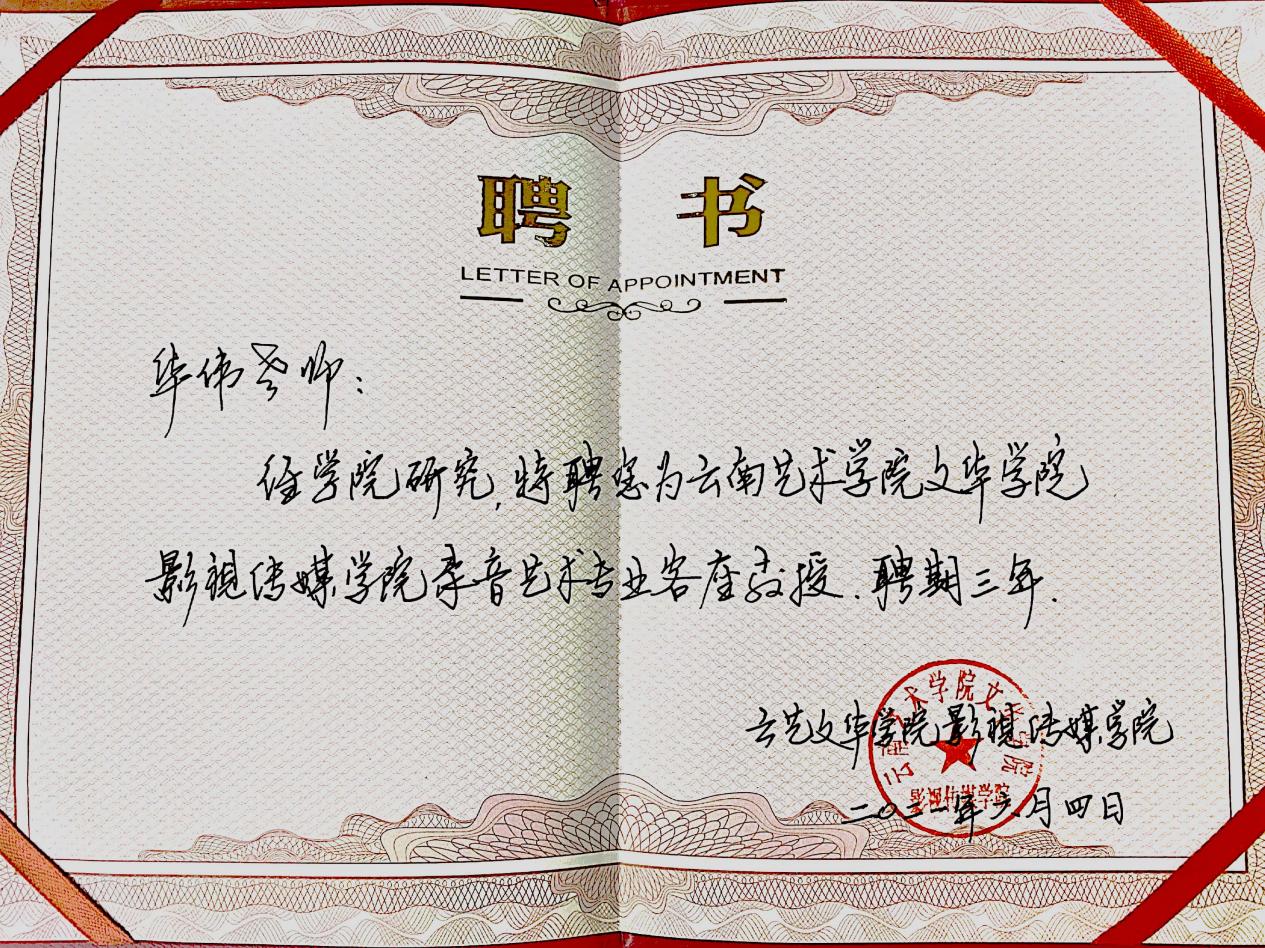 聘 书
LETTER OF APPOINTMENT
华伟老师：
经学院研究,特聘您为云南艺术学院文华学院
影视传媒学院录音艺术专业客座教授.聘期三年.
云南艺术学院文华学院
云艺文华学院影视传媒学院
二〇二一年六月四日